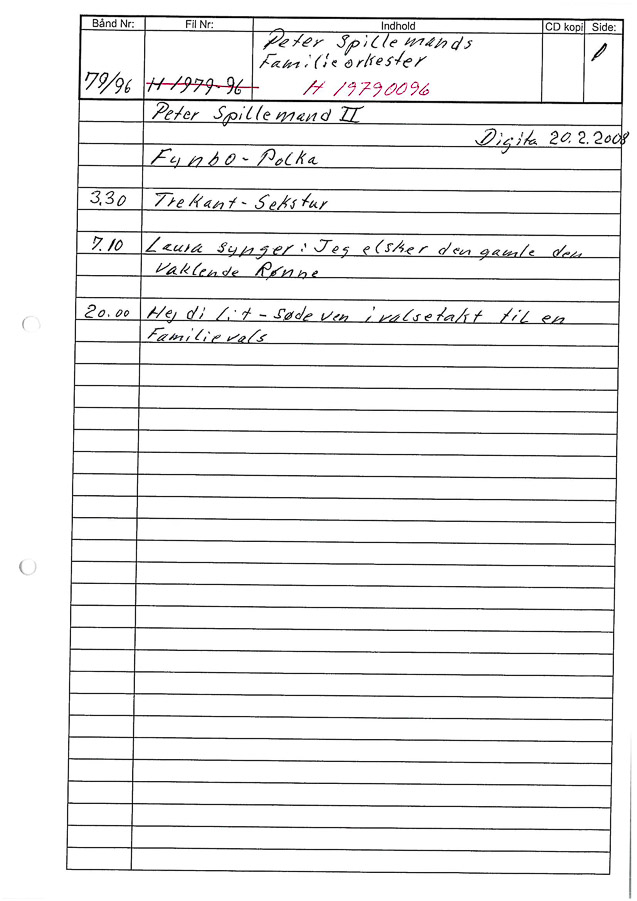 Bånd Nr: Fil Nr: Indhold CD kopi Side:
Peter Spillemands
Familieorkester
79/96 H 1979-96 H 19790096
Peter Spillemand II
Digita 20.2.2008
Fynbo-Polka
3,30 Trekant-Sekstur
7.10 Laura synger: Jeg elsker den gamle den
vaklende Rønne
20.00 Hej di lit-søde ven i valsetakt til en
Familievals